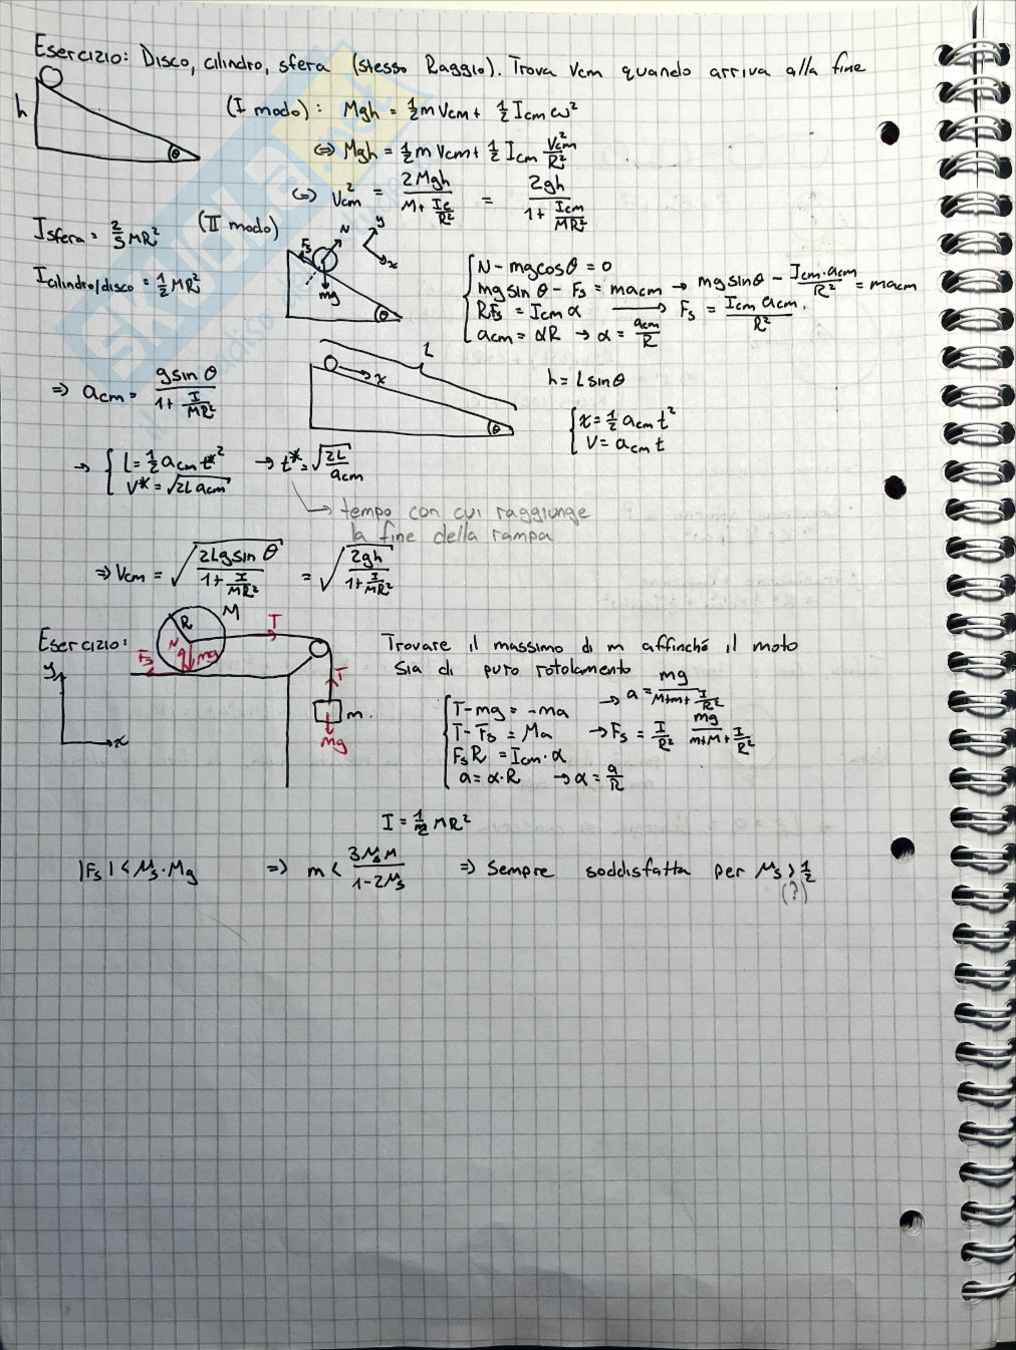 Esercizio: Disco, cilindro, sfera (stesso Raggio). Trova Vcm quando arriva alla fine
h
θ
(I modo): Mgh = 1/2 m Vcm + 1/2 Icm ω²
⇔ Mgh = 1/2 m Vcm + 1/2 Icm Vcm²/R²
⇔ Vcm² = 2Mgh / (M + Ic/R²) = 2gh / (1 + Icm/MR²)
Isfera = 2/5 MR²
(II modo)
Icilindro/disco = 1/2 MR²
Fs N y x
mg
θ
N - mgcosθ = 0
mg sin θ - Fs = macm → mgsinθ - Icm·acm/R² = macm
RFs = Icm α → Fs = Icm acm/R².
acm = αR → α = acm/R
⇒ acm = gsin θ / (1 + I/MR²)
L
x
θ
h = Lsinθ
x = 1/2 acm t²
V = acm t
→ L = 1/2 acm t*² → t* = √2L/acm
V* = √2Lacm
→ tempo con cui raggiunge
la fine della rampa
⇒ Vcm = √(2Lgsin θ / (1 + I/MR²)) = √(2gh / (1 + I/MR²))
Esercizio:
R M T
N Mg Fs
T
m.
mg
y
x
Trovare il massimo di m affinché il moto
sia di puro rotolamento
T - mg = -ma → a = mg / (M+m+ I/R²)
T - Fs = Ma → Fs = I/R² mg / (m+M+ I/R²)
FsR = Icm·α
a = α·R → α = a/R
I = 1/2 MR²
|Fs| < μs·Mg ⇒ m < 3μsM / (1-2μs) ⇒ Sempre soddisfatta per μs > 1/2
(?)